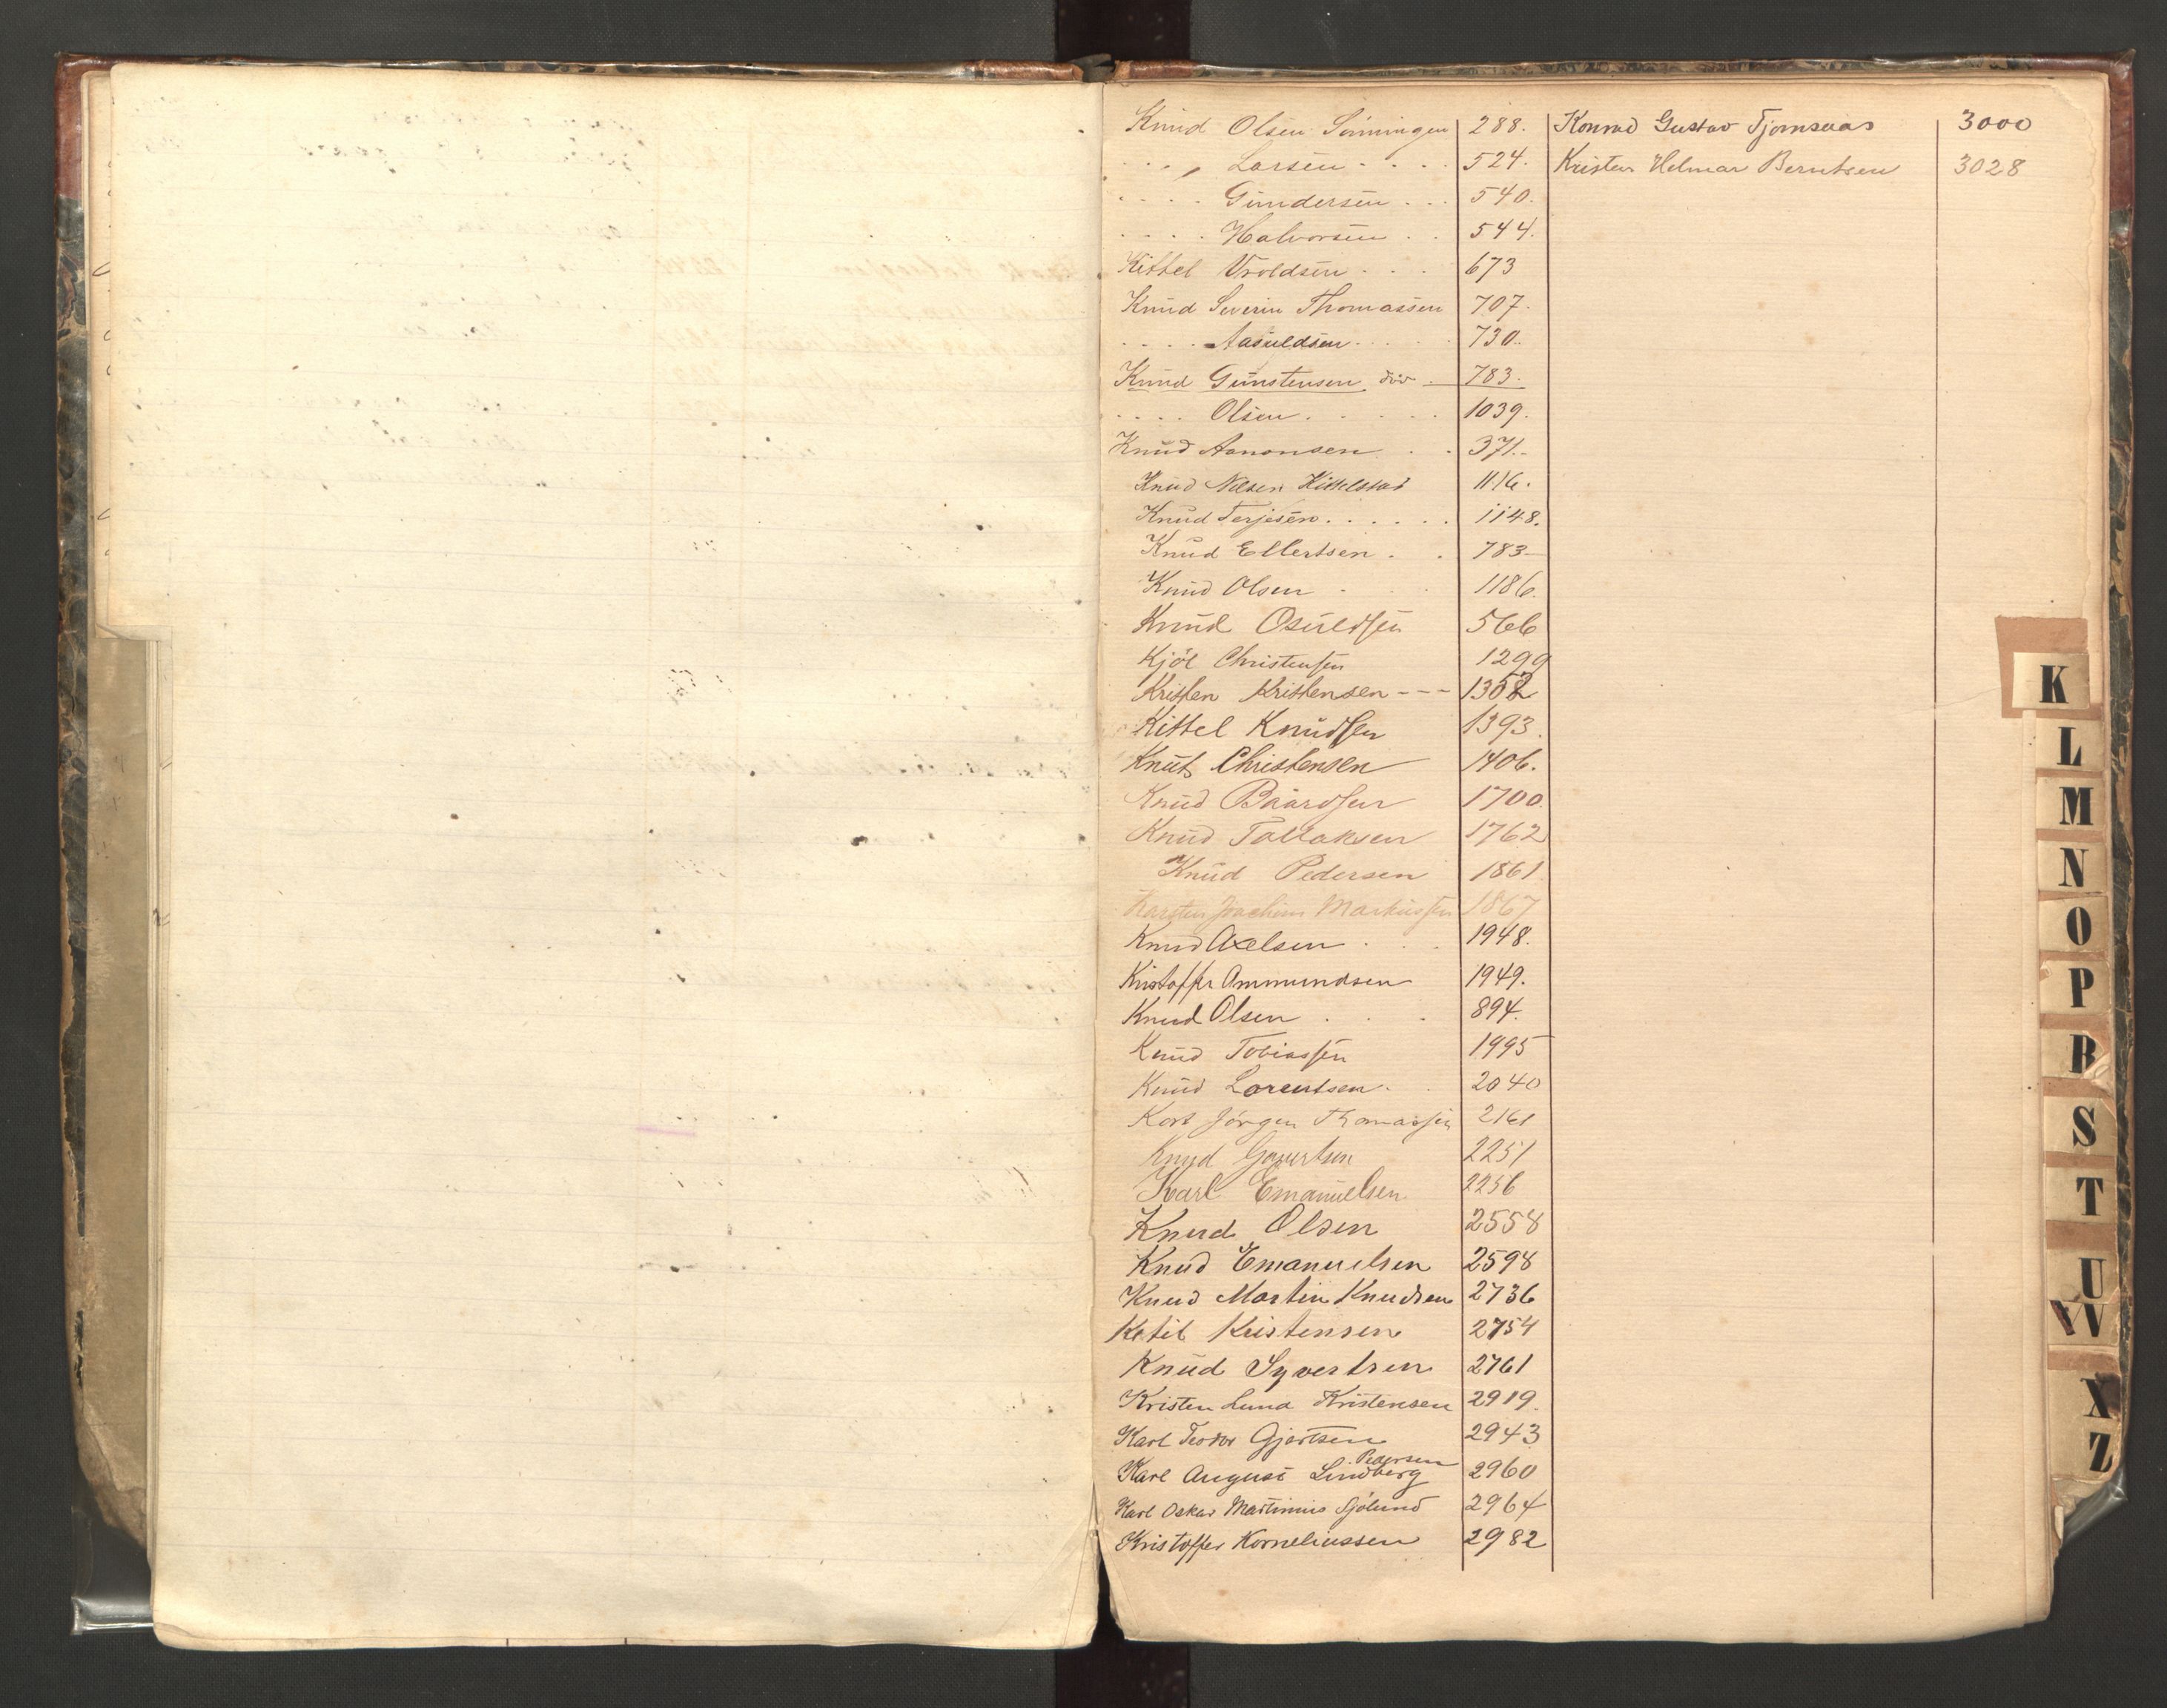 Knud Olsen Sönningen 288.
" Larsen 524.
Gundersen 540.
Halvorsen 544.
Kittel Vroldsen 673
Knud Severin Thomassen 707.
Aasuldsen 730.
Knud Gunstensen död 783.
Olsen 1039.
Knud Aanonsen 371.
Knud Nilsen Kittelstad 1116.
Knud Terjesen 1148.
Knud Ellertsen 783
Knud Olsen 1186.
Knud Osuldsen 566
Kjöl Christensen 1299
Kristen Kristensen 1308
Kittel Knudsen 1393.
Knut Christensen 1406.
Knud Baardsen 1700.
Knud Tallaksen 1762
Knud Pedersen 1861
Karsten Joachim Markussen 1867
Knud Axelsen 1948.
Kristoffer Ommundsen 1949.
Knud Olsen 894.
Knud Tobiassen 1995
Knud Lorentsen 2040
Kort Jörgen Thomassen 2161
Knud 2251
Karl Emanuelsen 2256
Knud Olsen 2558
Knud Emanuelsen 2598
Knud Martin Knudsen 2736
Ketil Kristensen 2754
Knud Syvertsen 2761
Kristen Lund Kristensen 2919.
Karl Teodor Gjertsen 2943
Pedersen
Karl August Lindberg 2960
Karl Oskar Martinius Sjölund 2964
Kristoffer Korneliussen 2982
Konrad Gustav Tjomsaas 3000
Kristen Helmar Berntsen 3028
K
L
M
N
O
P
R
S
T
U
VW
X
Z